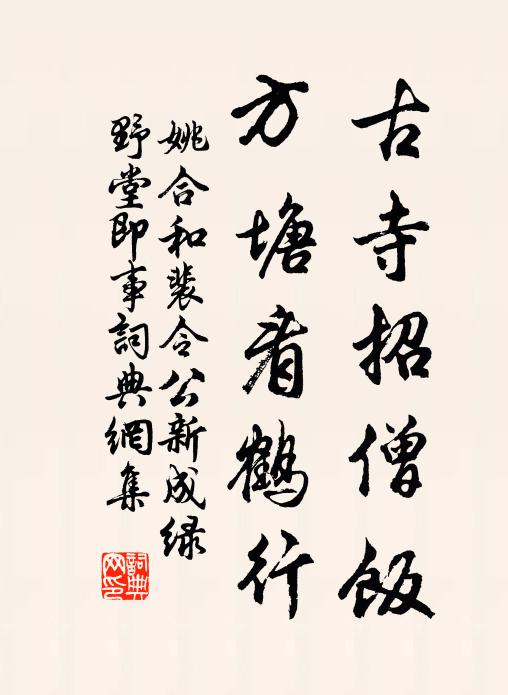 古寺招僧飯
方塘看鶴行
姚合和裴令公新成绿
野堂即事詞典網集
詞典
网印